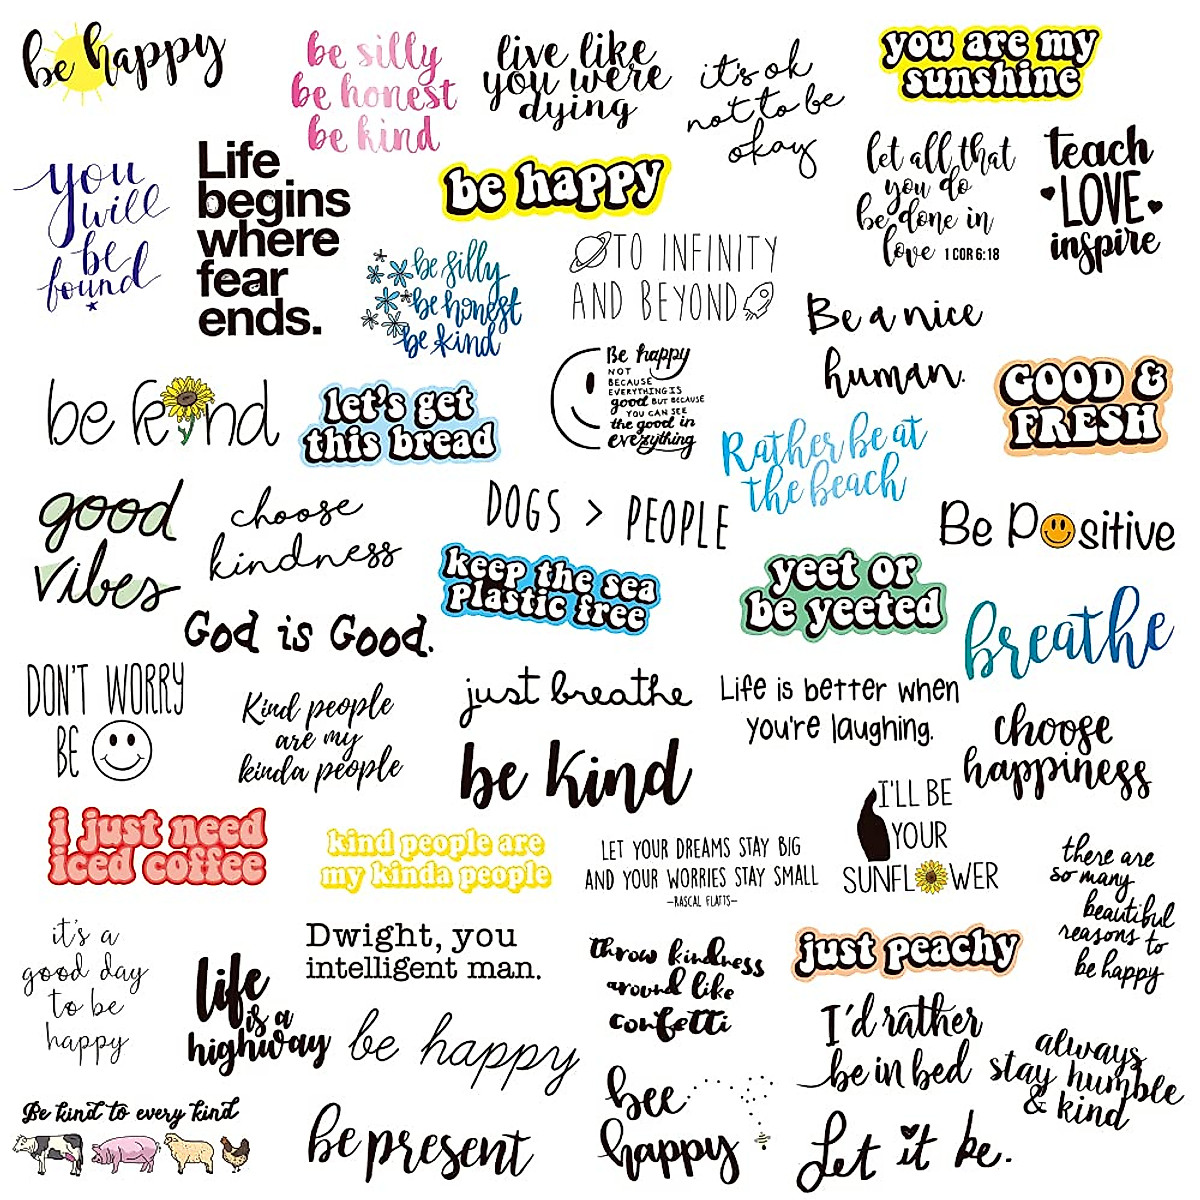 be happy
be silly
be honest
be kind
live like
you were
dying
it's ok
not to be
okay
you are my
sunshine
you
will
be
found
Life
begins
where
fear
ends.
be happy
let all that
you do
be done in
love 1 COR 6:18
teach
LOVE
inspire
be silly
be honest
be kind
TO INFINITY
AND BEYOND
Be a nice
human.
be kind
let's get
this bread
Be happy
NOT
BECAUSE
EVERYTHING IS
good BUT BECAUSE
YOU CAN SEE
the good in
everything
GOOD &
FRESH
Rather be at
the beach
good
vibes
choose
kindness
DOGS > PEOPLE
Be Positive
keep the sea
plastic free
yeet or
be yeeted
God is Good.
breathe
DON'T WORRY
BE
Kind people
are my
kinda people
just breathe
Life is better when
you're laughing.
be kind
choose
happiness
i just need
iced coffee
kind people are
my kinda people
LET YOUR DREAMS STAY BIG
AND YOUR WORRIES STAY SMALL
-RASCAL FLATTS-
I'LL BE
YOUR
SUNFLOWER
there are
so many
beautiful
reasons to
be happy
it's a
good day
to be
happy
life
is a
highway
Dwight, you
intelligent man.
be happy
throw kindness
around like
confetti
just peachy
I'd rather
be in bed
always
stay humble
& kind
Be kind to every kind
be present
bee
happy
Let it be.